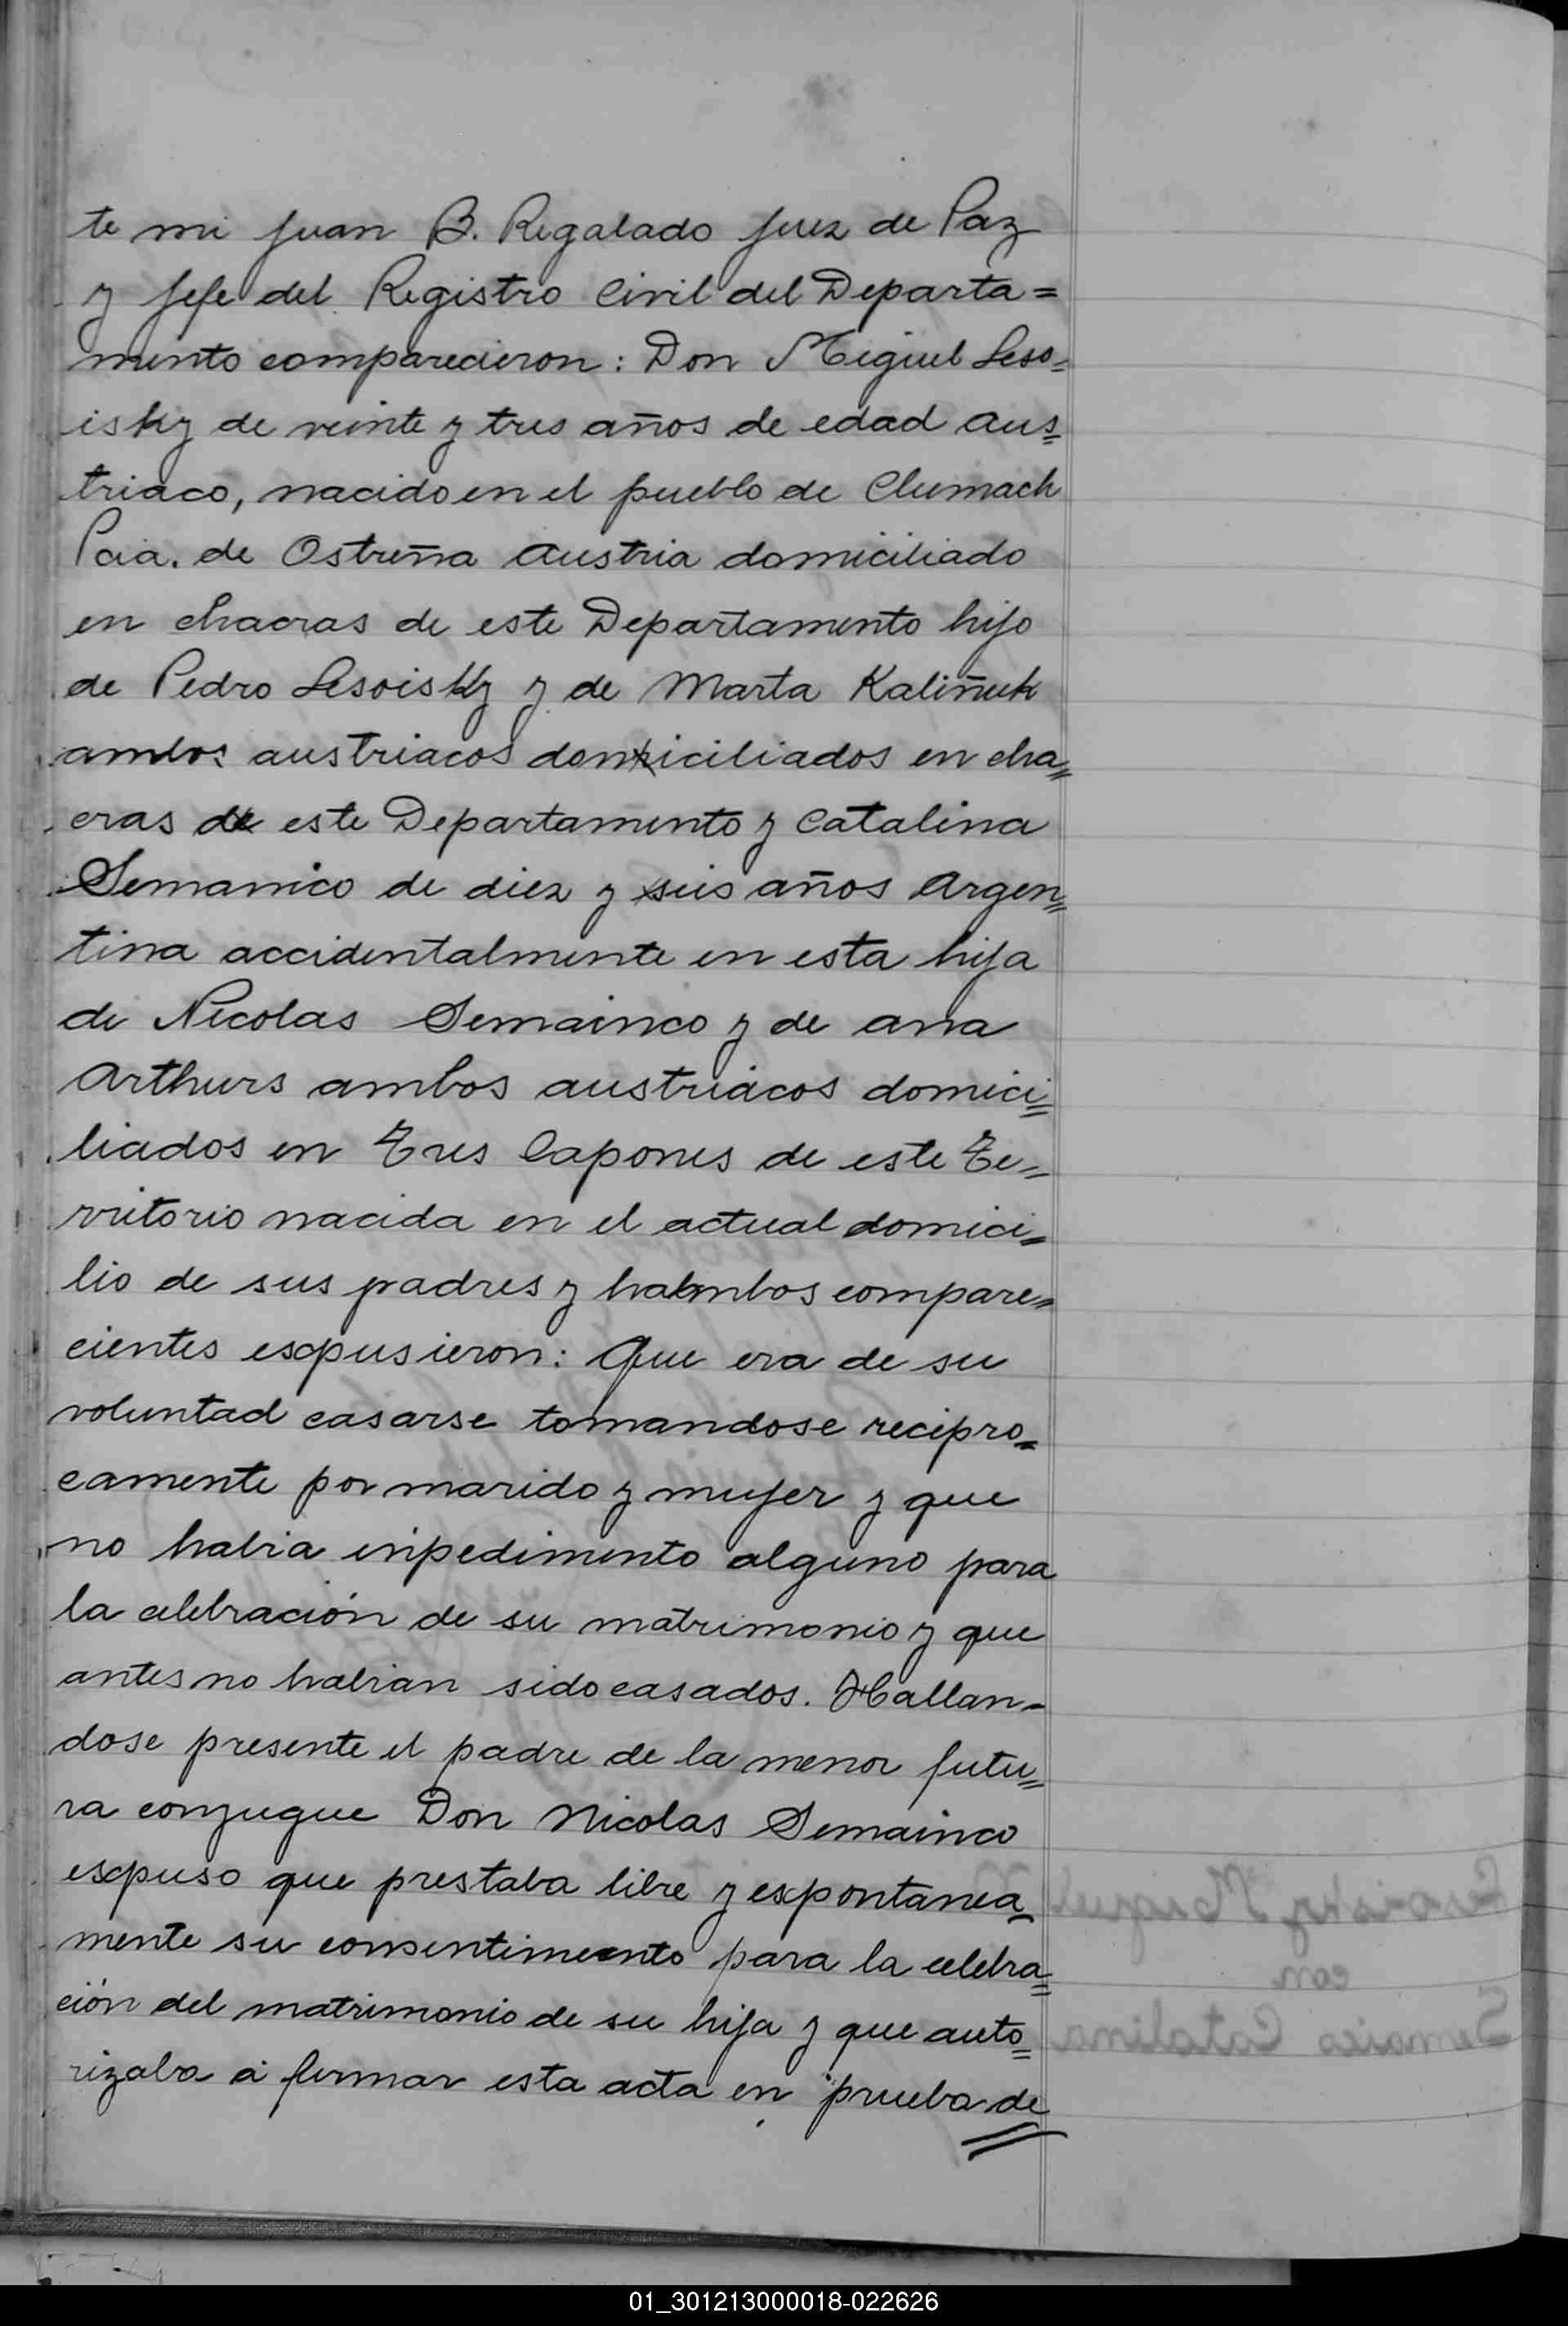 te mi Juan B. Regalado Juez de Paz
y Jefe del Registro Civil del Departa=
mento comparecieron: Don Miguel Leso=
isky de veinte y tres años de edad aus=
triaco, nacido en el pueblo de Clumach
Pcia. de Ostreña Austria domiciliado
en chacras de este Departamento hijo
de Pedro Lesoisky y de Marta Kaliñuk
ambos austriacos domiciliados en cha=
cras de este Departamento y Catalina
Semanico de diez y seis años Argen=
tina accidentalmente en esta hija
de Nicolas Semainco y de ana
Arthurs ambos austriacos domici=
liados en Tres Capones de este Te=
rritorio nacida en el actual domici=
lio de sus padres y hambos compare=
cientes expusieron: Que era de su
voluntad casarse tomandose recipro=
camente por marido y mujer y que
no habia inpedimento alguno para
la celebración de su matrimonio y que
antes no habian sido casados. Hallan=
dose presente el padre de la menor futu=
ra conyugue Don Nicolas Semainco
expuso que prestaba libre y expontanea=
mente su consentimiento para la celebra=
ción del matrimonio de su hija y que auto=
rizaba a firmar esta acta en prueba de
Lesoisky Miguel
con
Catalina
01_301213000018-022626